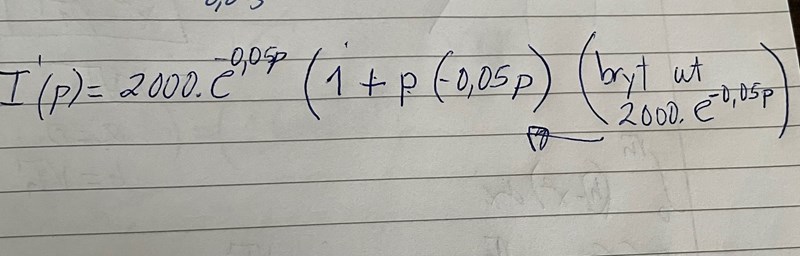 I'(p) = 2000 · e^-0,05p (1 + p (-0,05p) (bryt ut
2000 · e^-0,05p)